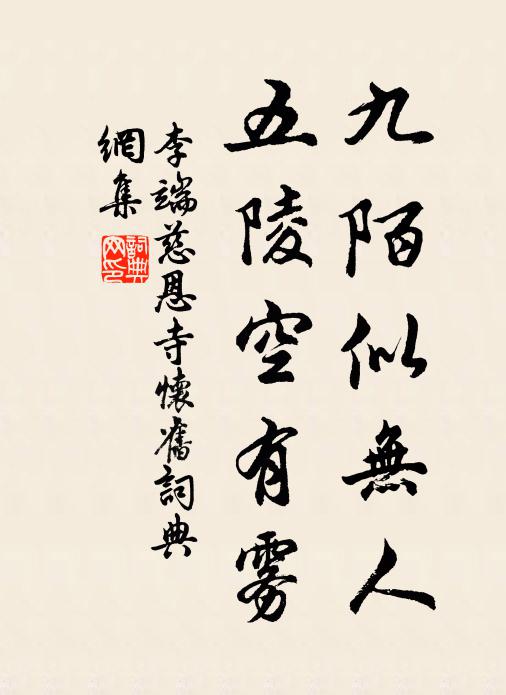 九陌似無人
五陵空有雾
李端慈恩寺懷舊詞典
網集
詞典
网印